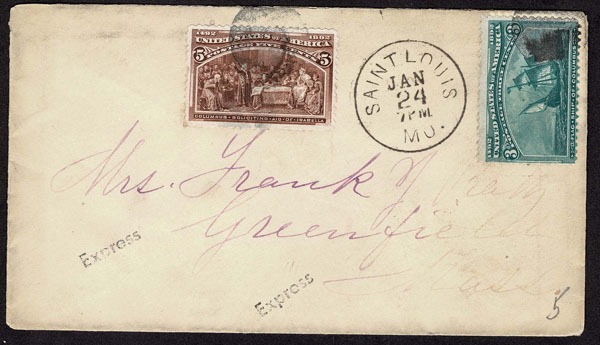 1492 UNITED STATES OF AMERICA 1892
5 POSTAGE FIVE CENTS 5
COLUMBUS SOLICITING AID OF ISABELLA
SAINT LOUIS
JAN
24
7 PM
MO.
1492 UNITED STATES OF AMERICA 1892
3
FLAG SHIP OF COLUMBUS
Mrs. Frank
Greenfield
Mass
Express
Express
5